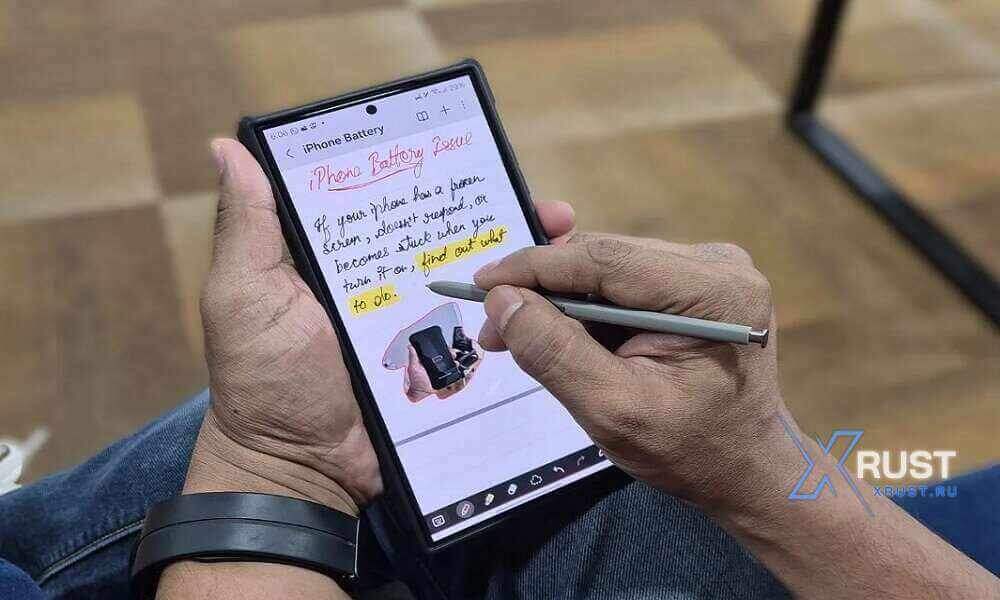 6:06
iPhone Battery
iPhone Battery Issue
If your iphone has a frozen
screen, doesn't respond, or
becomes stuck when you
turn it on, find out what
to do.
XRUST
XRUST.RU